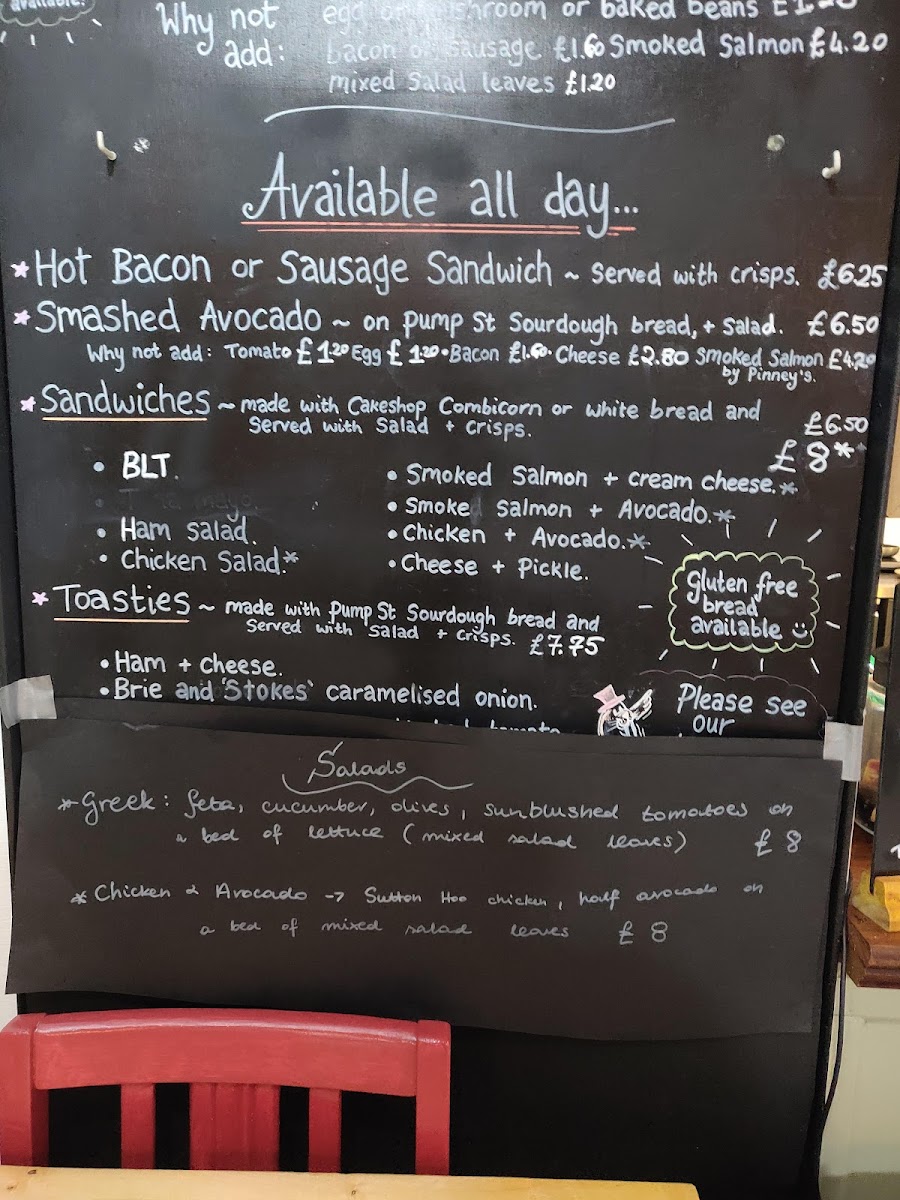 available.
Why not add: egg or mushroom or baked beans £1.20
bacon or sausage £1.60 Smoked Salmon £4.20
mixed salad leaves £1.20
Available all day...
*Hot Bacon or Sausage Sandwich ~ Served with crisps. £6.25
*Smashed Avocado ~ on Pump St Sourdough bread, + Salad. £6.50
Why not add: Tomato £1.20 Egg £1.20 • Bacon £1.60. Cheese £2.80 Smoked Salmon £4.20
by Pinney's.
*Sandwiches ~ made with Cakeshop Combicorn or white bread and
Served with Salad + crisps.
£6.50
£8*
• BLT.
• Ham Salad.
• Chicken Salad.*
• Smoked Salmon + cream cheese.*
• Smoked Salmon + Avocado.*
• Chicken + Avocado.*
• Cheese + Pickle.
Gluten free
bread
available
*Toasties ~ made with Pump St Sourdough bread and
Served with Salad + Crisps. £7.75
• Ham + cheese.
• Brie and 'Stokes' caramelised onion.
Please see
our
Salads
*Greek: feta, cucumber, olives, sunblushed tomatoes on
a bed of lettuce (mixed salad leaves) £8
*Chicken & Avocado -> Sutton Hoo chicken, half avocado on
a bed of mixed salad leaves £8